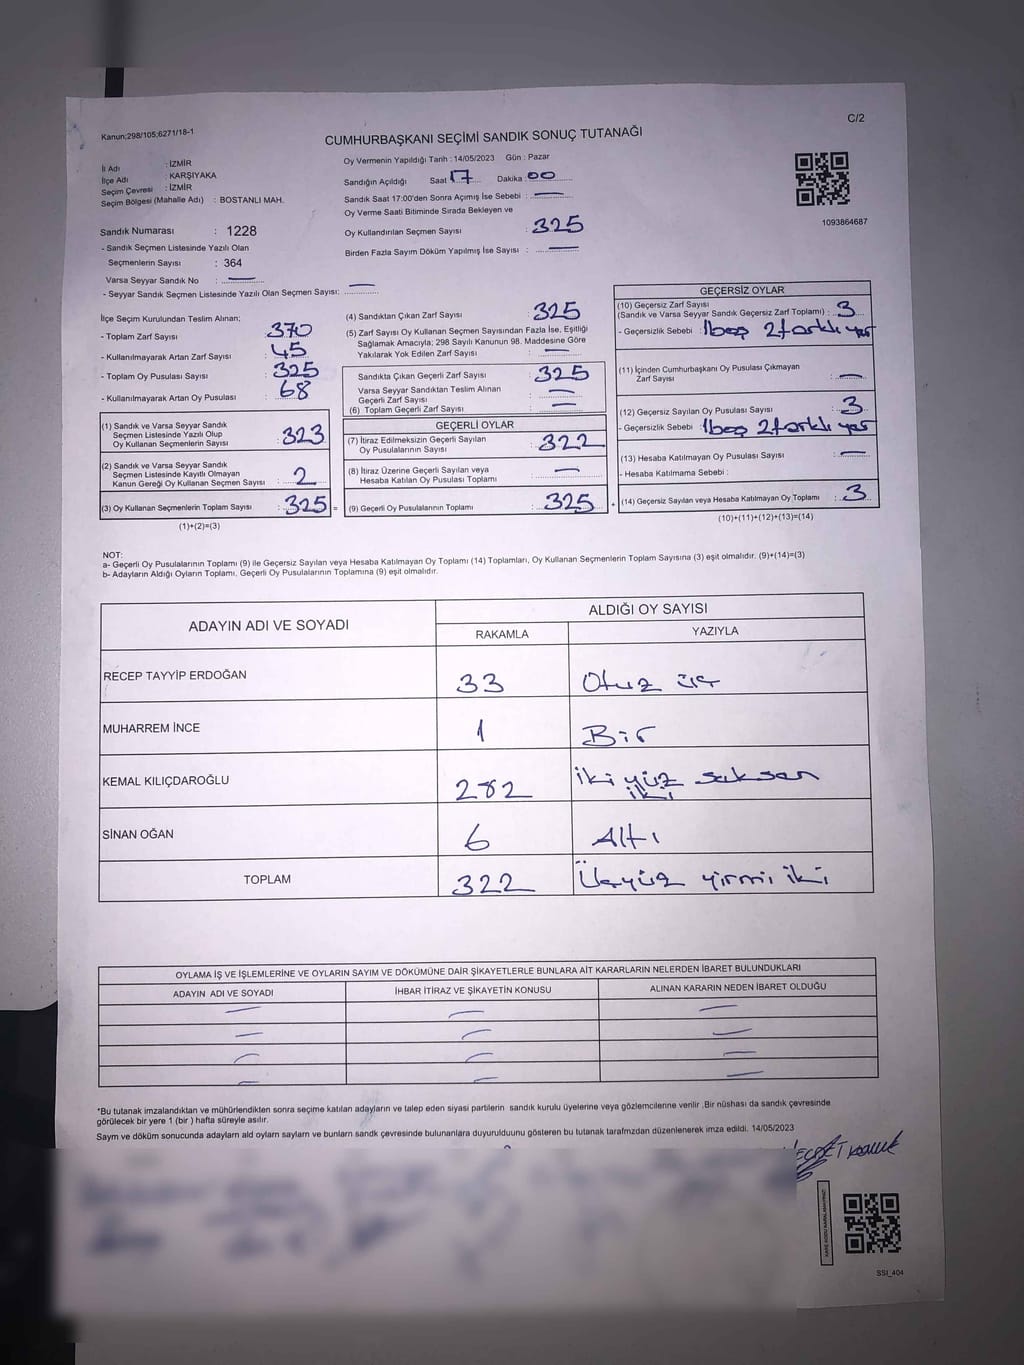 Kanun;298/105;6271/18-1
C/2
CUMHURBAŞKANI SEÇİMİ SANDIK SONUÇ TUTANAĞI
İl Adı : İZMİR
İlçe Adı : KARŞIYAKA
Seçim Çevresi : İZMİR
Seçim Bölgesi (Mahalle Adı) : BOSTANLI MAH.
Oy Vermenin Yapıldığı Tarih : 14/05/2023 Gün : Pazar
Sandığın Açıldığı Saat 17 Dakika : 00
Sandık Saat 17:00'den Sonra Açımış İse Sebebi : —
Oy Verme Saati Bitiminde Sırada Bekleyen ve
Oy Kullandırılan Seçmen Sayısı : 325
Birden Fazla Sayım Döküm Yapılmış İse Sayısı : —
1093864687
Sandık Numarası : 1228
- Sandık Seçmen Listesinde Yazılı Olan
Seçmenlerin Sayısı : 364
Varsa Seyyar Sandık No : —
- Seyyar Sandık Seçmen Listesinde Yazılı Olan Seçmen Sayısı: —
İlçe Seçim Kurulundan Teslim Alınan;
- Toplam Zarf Sayısı : 370
- Kullanılmayarak Artan Zarf Sayısı : 45
- Toplam Oy Pusulası Sayısı : 325
- Kullanılmayarak Artan Oy Pusulası : 68
(1) Sandık ve Varsa Seyyar Sandık
Seçmen Listesinde Yazılı Olup
Oy Kullanan Seçmenlerin Sayısı : 323
(2) Sandık ve Varsa Seyyar Sandık
Seçmen Listesinde Kayıtlı Olmayan
Kanun Gereği Oy Kullanan Seçmen Sayısı : 2
(3) Oy Kullanan Seçmenlerin Toplam Sayısı : 325 =
(1)+(2)=(3)
(4) Sandıktan Çıkan Zarf Sayısı : 325
(5) Zarf Sayısı Oy Kullanan Seçmen Sayısından Fazla İse, Eşitliği
Sağlamak Amacıyla; 298 Sayılı Kanunun 98. Maddesine Göre
Yakılarak Yok Edilen Zarf Sayısı : —
Sandıkta Çıkan Geçerli Zarf Sayısı : 325
Varsa Seyyar Sandıktan Teslim Alınan
Geçerli Zarf Sayısı : —
(6) Toplam Geçerli Zarf Sayısı : —
GEÇERLİ OYLAR
(7) İtiraz Edilmeksizin Geçerli Sayılan
Oy Pusulalarının Sayısı : 322
(8) İtiraz Üzerine Geçerli Sayılan veya
Hesaba Katılan Oy Pusulası Toplamı : —
(9) Geçerli Oy Pusulalarının Toplamı : 325 +
GEÇERSİZ OYLAR
(10) Geçersiz Zarf Sayısı
(Sandık ve Varsa Seyyar Sandık Geçersiz Zarf Toplamı) : 3
- Geçersizlik Sebebi : 1 boş 2 farklı yer
(11) İçinden Cumhurbaşkanı Oy Pusulası Çıkmayan
Zarf Sayısı : —
(12) Geçersiz Sayılan Oy Pusulası Sayısı : 3
- Geçersizlik Sebebi : 1 boş 2 farklı yer
(13) Hesaba Katılmayan Oy Pusulası Sayısı : —
- Hesaba Katılmama Sebebi :
(14) Geçersiz Sayılan veya Hesaba Katılmayan Oy Toplamı : 3
(10)+(11)+(12)+(13)=(14)
NOT:
a- Geçerli Oy Pusulalarının Toplamı (9) ile Geçersiz Sayılan veya Hesaba Katılmayan Oy Toplamı (14) Toplamları, Oy Kullanan Seçmenlerin Toplam Sayısına (3) eşit olmalıdır. (9)+(14)=(3)
b- Adayların Aldığı Oyların Toplamı, Geçerli Oy Pusulalarının Toplamına (9) eşit olmalıdır.
ADAYIN ADI VE SOYADI ALDIĞI OY SAYISI
RAKAMLA YAZIYLA
RECEP TAYYİP ERDOĞAN 33 Otuz üç
MUHARREM İNCE 1 Bir
KEMAL KILIÇDAROĞLU 282 iki yüz seksen iki
SİNAN OĞAN 6 Altı
TOPLAM 322 Üçyüz yirmi iki
OYLAMA İŞ VE İŞLEMLERİNE VE OYLARIN SAYIM VE DÖKÜMÜNE DAİR ŞİKAYETLERLE BUNLARA AİT KARARLARIN NELERDEN İBARET BULUNDUKLARI
ADAYIN ADI VE SOYADI İHBAR İTİRAZ VE ŞİKAYETİN KONUSU ALINAN KARARIN NEDEN İBARET OLDUĞU
— — —
— — —
— — —
— — —
*Bu tutanak imzalandıktan ve mühürlendikten sonra seçime katılan adayların ve talep eden siyasi partilerin sandık kurulu üyelerine veya gözlemcilerine verilir ,Bir nüshası da sandık çevresinde
görülecek bir yere 1 (bir ) hafta süreyle asılır.
Sayım ve döküm sonucunda adayların ald oyların sayların ve bunların sandk çevresinde bulunanlara duyurulduunu gösteren bu tutanak tarafmzdan düzenlenerek imza edildi. 14/05/2023
SSI_404